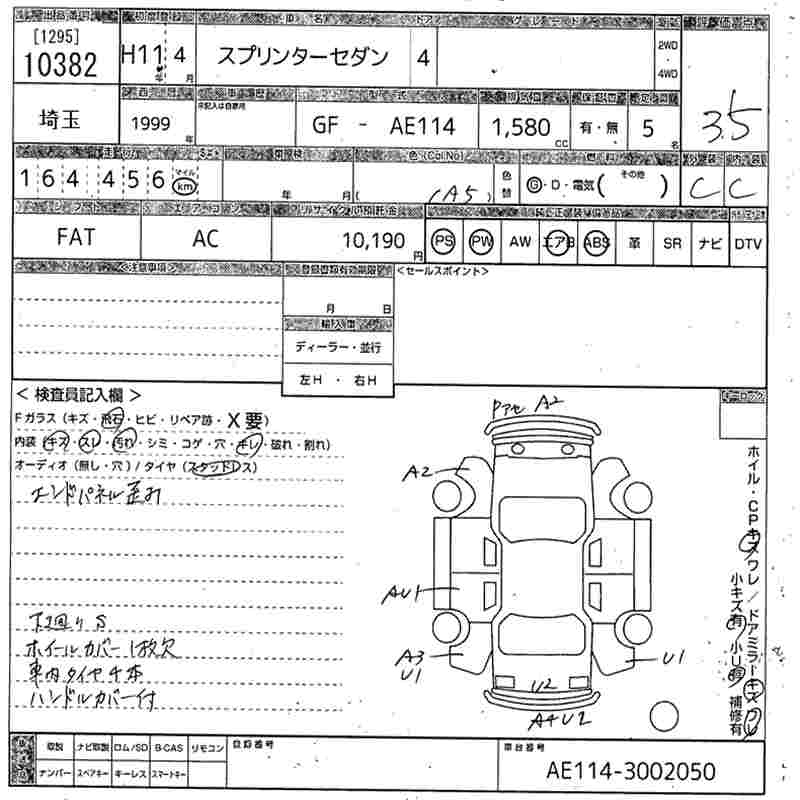 出品番号 初度登録 車 名 ドア グレード 評価点
[1295]
10382 H11 4 スプリンターセダン 4 2WD・4WD 3.5
年 月
車歴 型 式 排気量
未記入は自家用
埼玉 1999年 GF - AE114 1,580cc 有・無 5名
走行 車検 色(Col No) 燃料 外装 内装
164,456 マイル km 年 月 (1A5) 色替 G・D・電気( その他 ) C C
シフト エアコン リサイクル預託金
FAT AC 10,190円 PS PW AW エアB ABS 革 SR ナビ DTV
<注意事項> 登録書類有効期限 <セールスポイント>
月 日
輸入車
ディーラー・並行
左H ・ 右H
<検査員記入欄> キーロック
Fガラス(キズ・飛石・ヒビ・リペア跡・X要)
内装(キズ・スレ・汚れ・シミ・コゲ・穴・キレ・破れ・割れ)
オーディオ(無し・穴)/タイヤ(スタッドレス)
エンドパネル歪み
下廻りS
ホイールカバー1枚欠
車内タイヤ4本
ハンドルカバー付
A2
A2
AU1
A3
U1
U1
U2
A4U2
ホイル・CPキズワレ/ドアミラーキズワレ
小キズ有 小U有 補修有
取説 ナビ取説 ロム/SD B-CAS リモコン 登録番号 車台番号
ナンバー スペアキー キーレス スマートキー
AE114-3002050